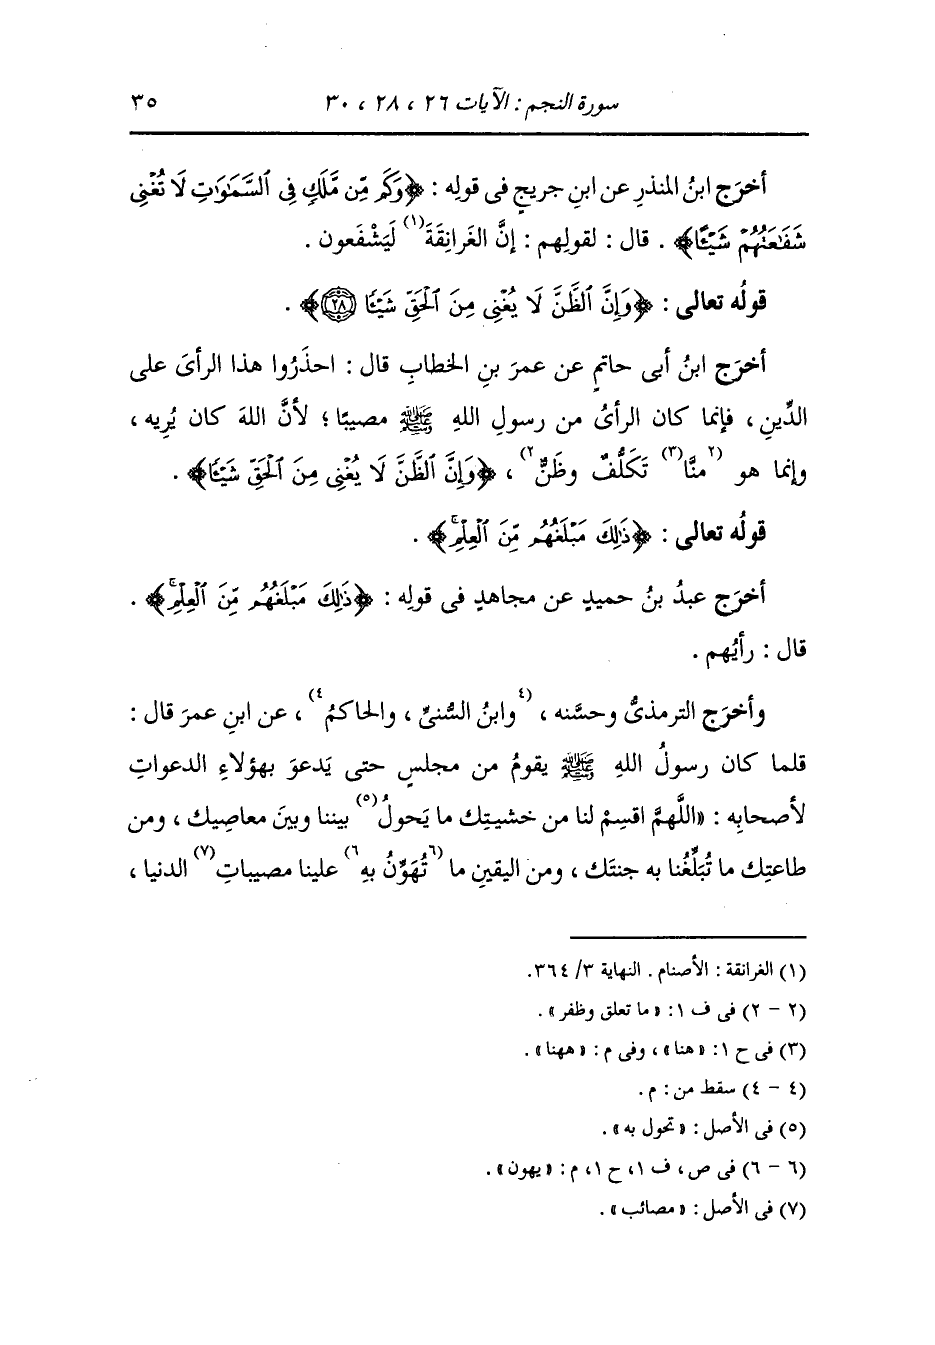 سورة النجم : الآيات ٢٦ ، ٢٨ ، ٣٠ ٣٥
أخرَج ابنُ المنذرِ عن ابنِ جريجٍ فى قولِه : ﴿وَكَم مِّن مَّلَكٍ فِى ٱلسَّمَٰوَٰتِ لَا تُغْنِى
شَفَٰعَتُهُمْ شَيْـًٔا﴾ . قال : لقولِهم : إنَّ الغَرانِقَةَ(١) لَيَشْفَعون .
قولُه تعالى : ﴿وَإِنَّ ٱلظَّنَّ لَا يُغْنِى مِنَ ٱلْحَقِّ شَيْـًٔا ٢٨﴾ .
أخرَج ابنُ أبى حاتمٍ عن عمرَ بنِ الخطابِ قال : احذَرُوا هذا الرأىَ على
الدِّينِ ، فإنما كان الرأىُ من رسولِ اللهِ ﷺ مصيبًا ؛ لأنَّ اللهَ كان يُرِيه ،
وإنما هو (٢منَّا(٣) تَكَلُّفٌ وظَنٌّ٢) ، ﴿وَإِنَّ ٱلظَّنَّ لَا يُغْنِى مِنَ ٱلْحَقِّ شَيْـًٔا﴾ .
قولُه تعالى : ﴿ذَٰلِكَ مَبْلَغُهُم مِّنَ ٱلْعِلْمِۚ﴾ .
أخرَج عبدُ بنُ حميدٍ عن مجاهدٍ فى قولِه : ﴿ذَٰلِكَ مَبْلَغُهُم مِّنَ ٱلْعِلْمِۚ﴾ .
قال : رأيُهم .
وأخرَج الترمذىُّ وحسَّنه ، (٤وابنُ السُّنىِّ ، والحاكمُ٤) ، عن ابنِ عمرَ قال :
قلما كان رسولُ اللهِ ﷺ يقومُ من مجلسٍ حتى يَدعوَ بهؤلاءِ الدعواتِ
لأصحابِه : «اللَّهمَّ اقسِمْ لنا من خشيتِك ما يَحولُ(٥) بيننا وبينَ معاصِيك ، ومن
طاعتِك ما تُبَلِّغُنا به جنتَك ، ومن اليقينِ ما (٦تُهَوِّنُ بهِ٦) علينا مصيباتِ(٧) الدنيا ،
(١) الغرانقة : الأصنام . النهاية ٣/ ٣٦٤.
(٢ - ٢) فى ف ١: «ما تعلق وظفر» .
(٣) فى ح ١: «هنا» ، وفى م : «ههنا» .
(٤ - ٤) سقط من : م .
(٥) فى الأصل : «تحول به» .
(٦ - ٦) فى ص ، ف ١، ح ١، م : «يهون» .
(٧) فى الأصل : «مصائب» .